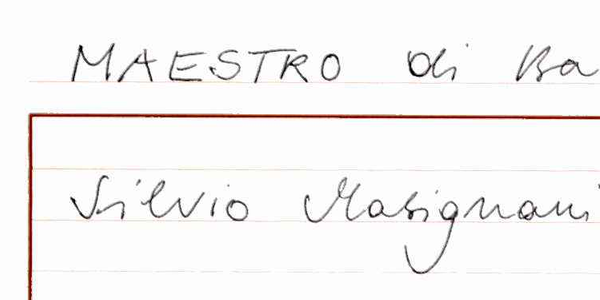 MAESTRO di Ba
Silvio Masignani